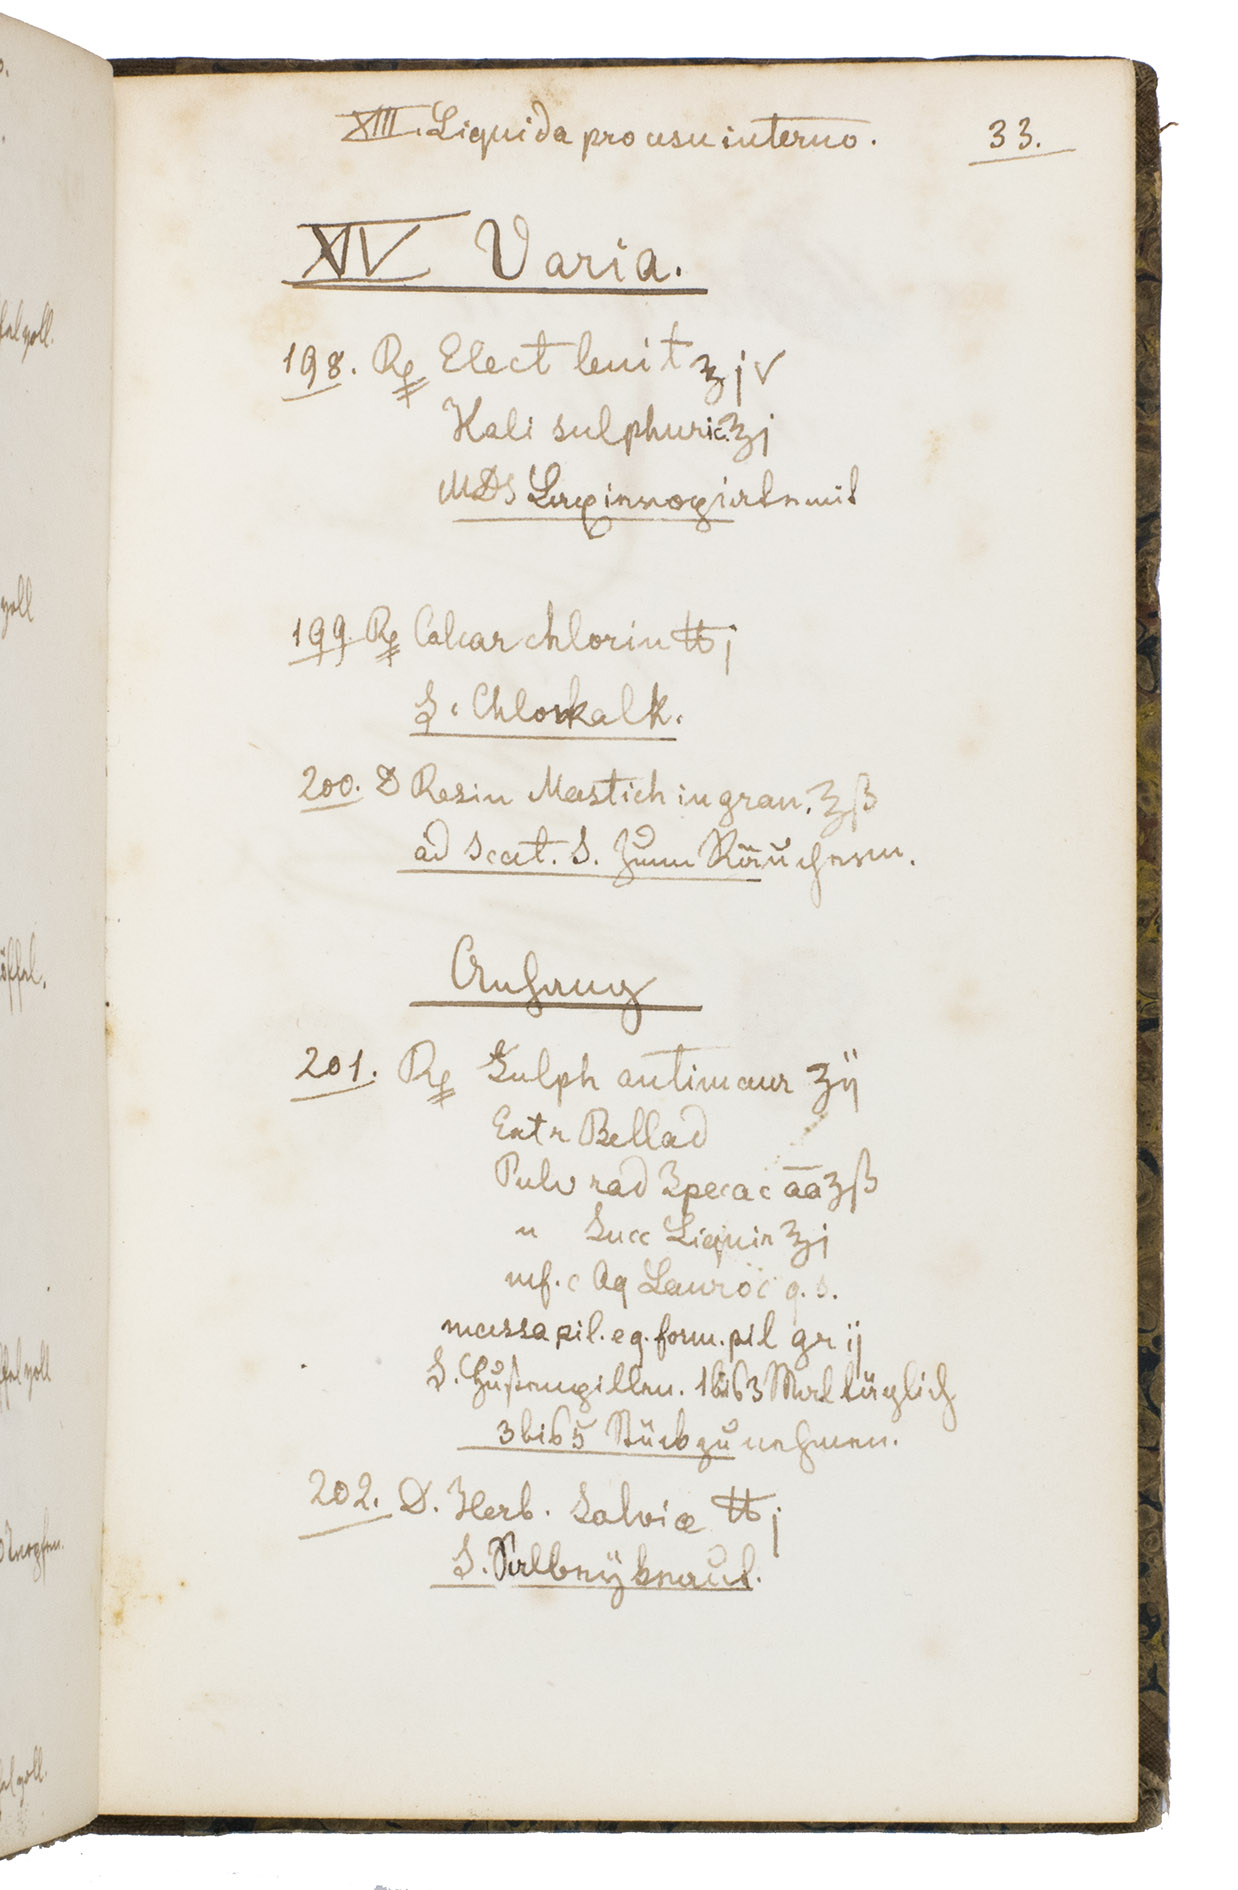 XIII. Liquida pro usu interno. 33.
XIV Varia.
198. Rp Elect lenit ℥jv
Kali sulphuric. ʒj
MDS Laxierlatwerge
199. Rp Calcar chlorin ℔j
S. Chlorkalk.
200. D Resin Mastich in gran. ℥ß
ad scat. S. Zum Räuchern.
Anhang
201. Rp Sulph antim aur ʒij
Extr Bellad
Pulv rad Ipecac āā ʒß
" Succ Liquir ʒj
mf. c Aq Lauroc q. s.
massa pil. eq. form. pil gr ij
S. Hustenpillen. 1 bis 3 Mal täglich
3 bis 5 Stück zu nehmen.
202. D. Herb. Salviæ ℔j
S. Salbeÿkraut.
felvoll.
voll
öffel.
ffelvoll
Tropfen.
felvoll.